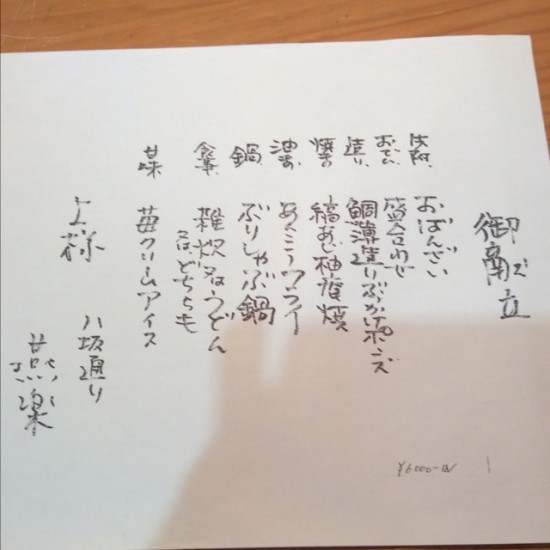 御献立
先附 おばんざい
おでん 盛合わせ
造り 鯛薄造りぶっかけポンズ
焼き 縞あじ柚庵焼
油もの あんこうフライ
鍋 ぶりしゃぶ鍋
食事 雑炊又はうどん
又はどちらも
甘味 苺クリームアイス
上様
八坂通り
燕楽
¥6000-